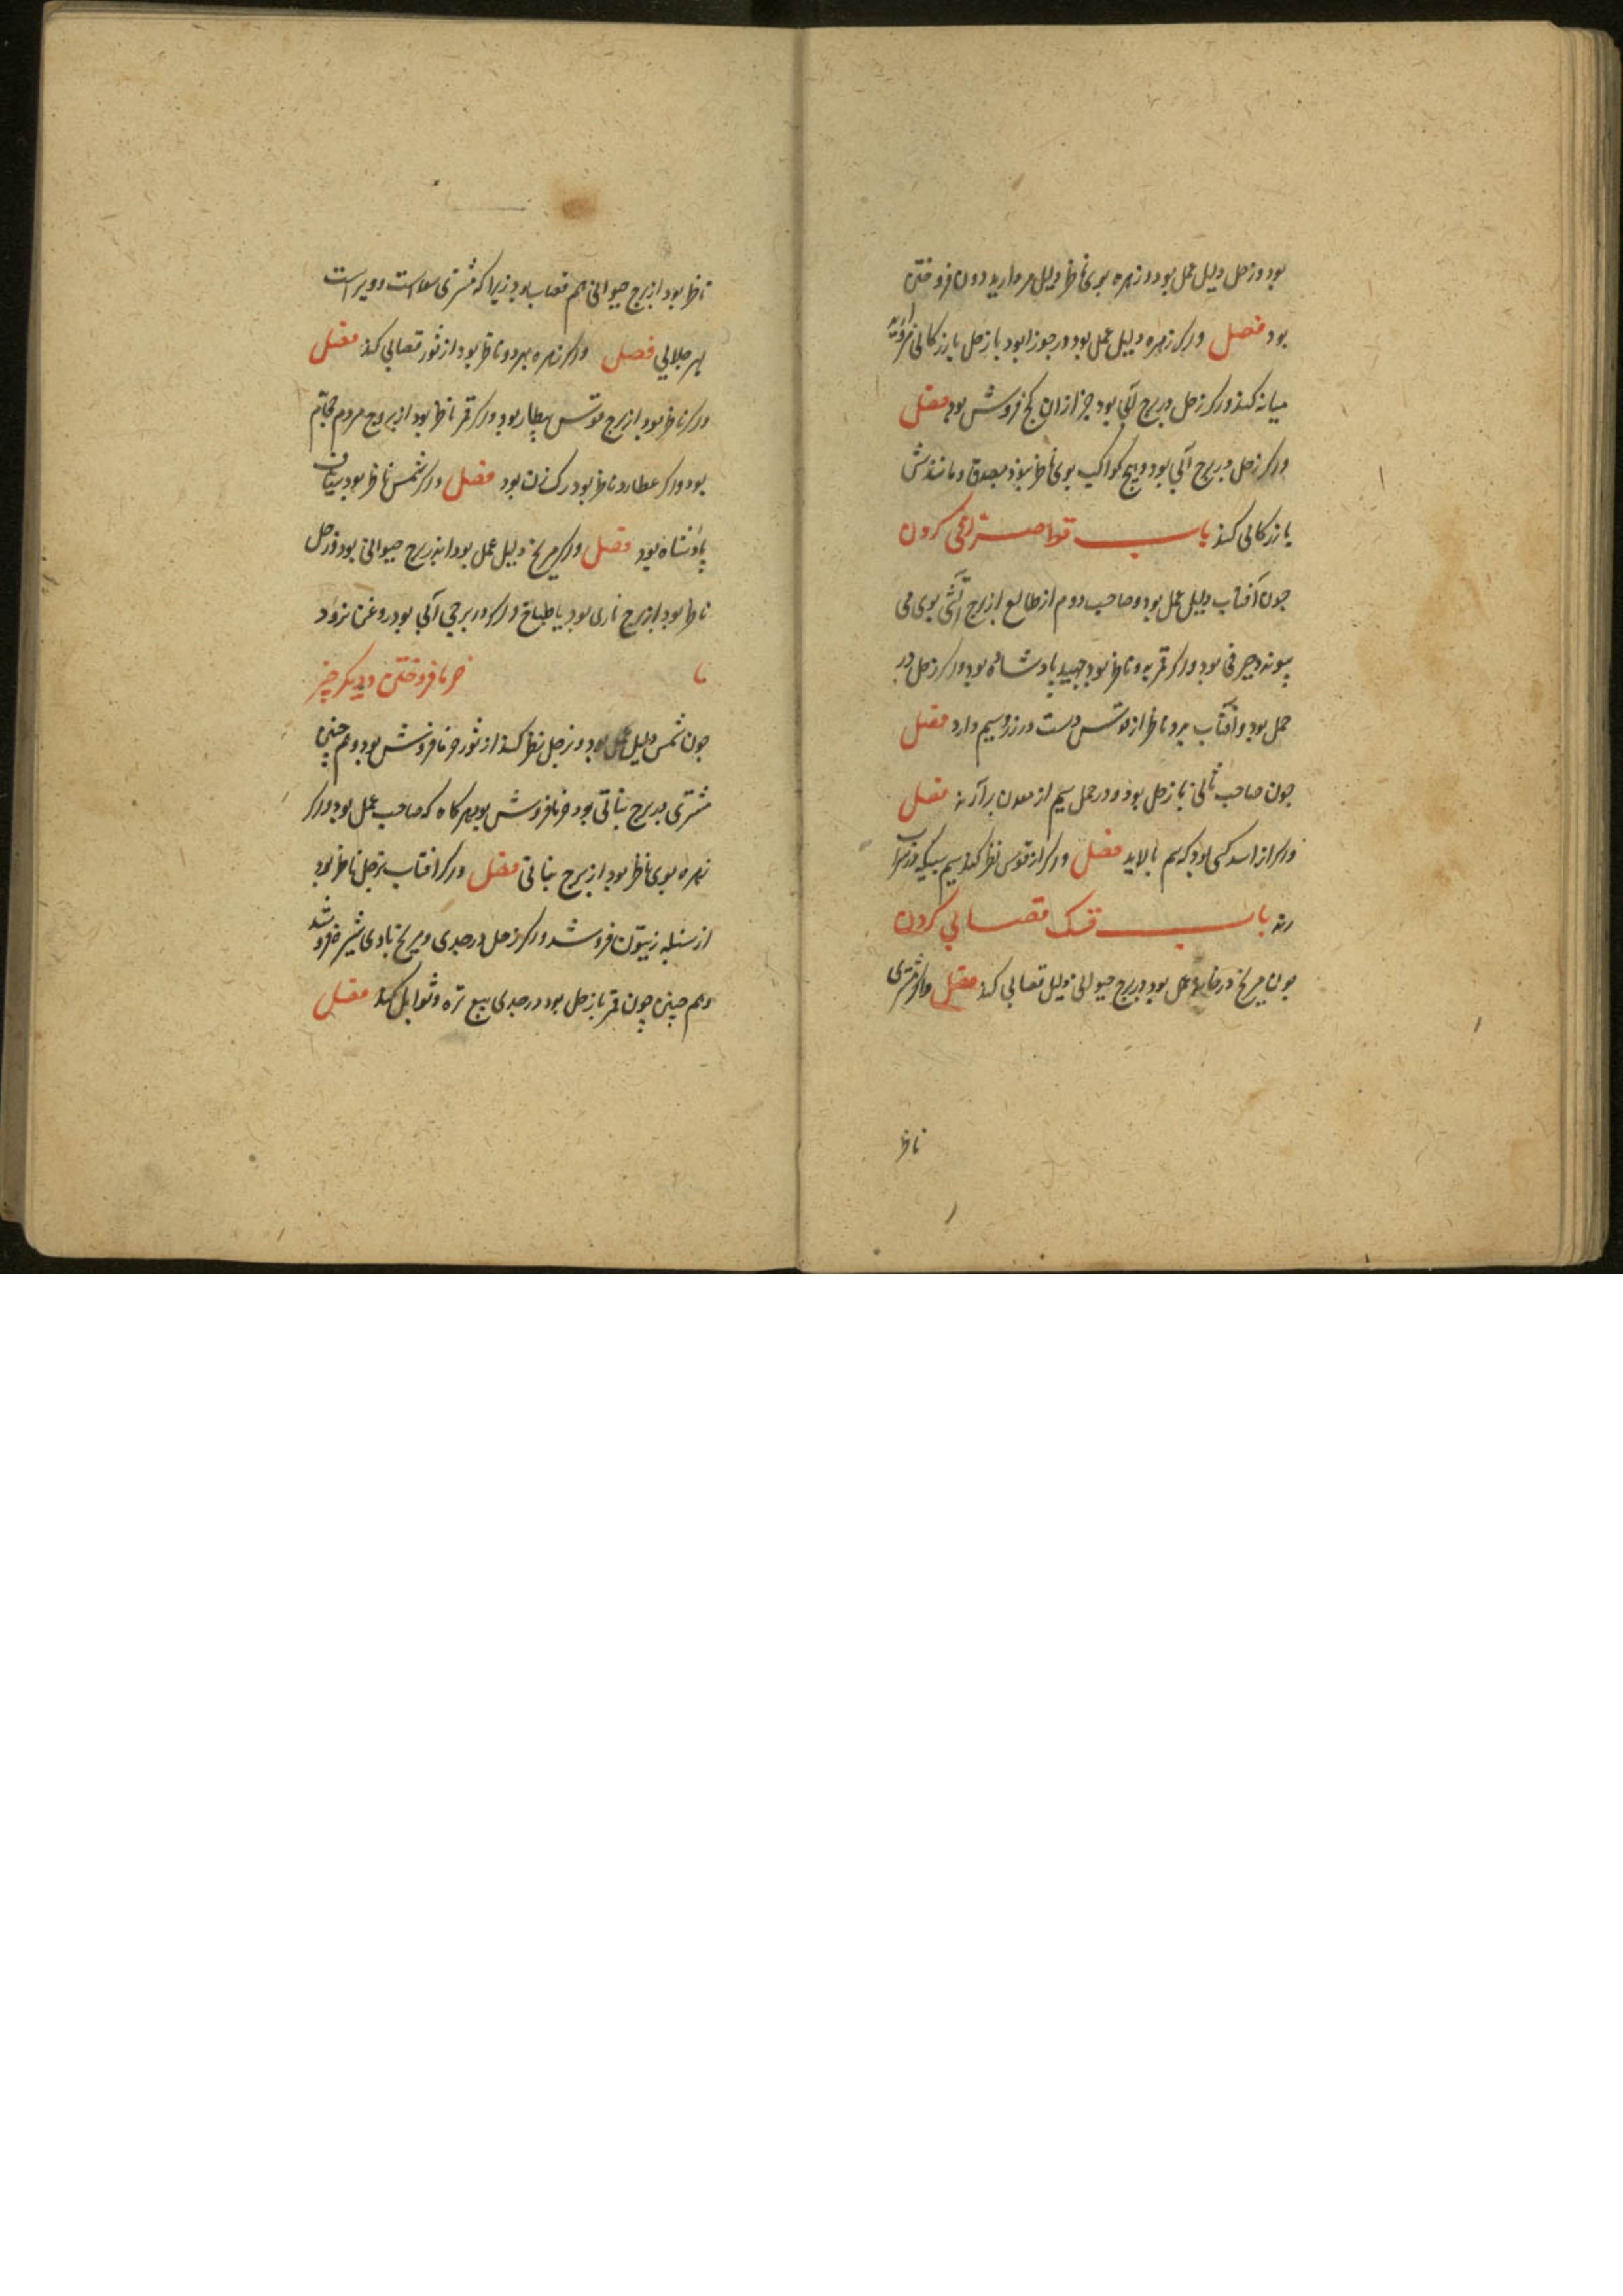 بود و زحل دلیل عمل بود و زهره بوی ناظر دلیل مروارید فروختن
بود فصل و اگر زهره دلیل عمل بود و در جوزا بود با زحل بازرکانی
میانه کند و اگر زحل در برج آبی بود جز ازان کج فروش بود فصل
و اگر زحل در برج آبی بود و هیچ کواکب بوی ناظر نبود و مانندش
بازرکانی کند باب قوا صرافی کردن
چون آفتاب دلیل عمل بود و صاحب دوم از طالع از برج آتشی بوی می
پیوندد صرفی بود و اگر قمر بدو ناظر بود جهبذ پادشاه بود و اگر زحل در
حمل بود و آفتاب بدو ناظر از قوس دست در زر و سیم دارد فصل
چون صاحب ثانی با زحل بود و در حمل سیم از معدن برآرند فصل
و اگر از اسد کسی بود که سیم پالاید فصل و اگر از قوس نظر کند سیم
رند باب قنک قصابی کردن
چون مریخ در خانه عمل بود در برج حیوانی دلیل قصابی کند فصل و اگر مشتری
ناظر
ناظر بود از برج حیوانی هم قصاب بود زیرا که مشتری
بهر جلابی فصل و اگر زهره بدو ناظر بود از ثور قصابی کند فصل
و اگر ناظر بود از برج قوس بیطار بود و اگر قمر ناظر بود از بروج مردم حجام
بود و اگر عطارد ناظر بود رک زن بود فصل و اگر شمس ناظر بود
پادشاه بود فصل و اگر مریخ دلیل عمل بود اندر برج حیوانی بود و زحل
ناظر بود از برج ناری بود یا طباخ و اگر در برجی آبی بود روغن
با خرما فروختن و دیگر چیز
چون شمس دلیل عمل بود و زحل نظر کند از ثور خرما فروش بود و هم چنین
مشتری در برج نباتی بود خرما فروش بود هر کاه که صاحب عمل بود و اگر
زهره بوی ناظر بود از برج نباتی فصل و اگر افتاب بزحل ناظر بود
از سنبله زیتون فروشد و اگر زحل در جدی و مریخ با وی شیر فروشد
و هم چنین چون قمر با زحل بود در جدی بیع تره و توابل کند فصل